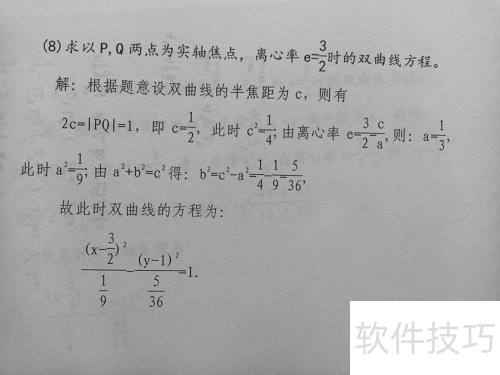 (8)求以P,Q两点为实轴焦点，离心率e=3/2时的双曲线方程。
解：根据题意设双曲线的半焦距为c，则有
2c=|PQ|=1，即 c=1/2，此时 c²=1/4;由离心率 e=3/2=c/a,则：a=1/3,
此时 a²=1/9;由 a²+b²=c² 得：b²=c²-a²=1/4-1/9=5/36,
故此时双曲线的方程为：
(x-3/2)²/(1/9)-(y-1)²/(5/36)=1.
软件技巧